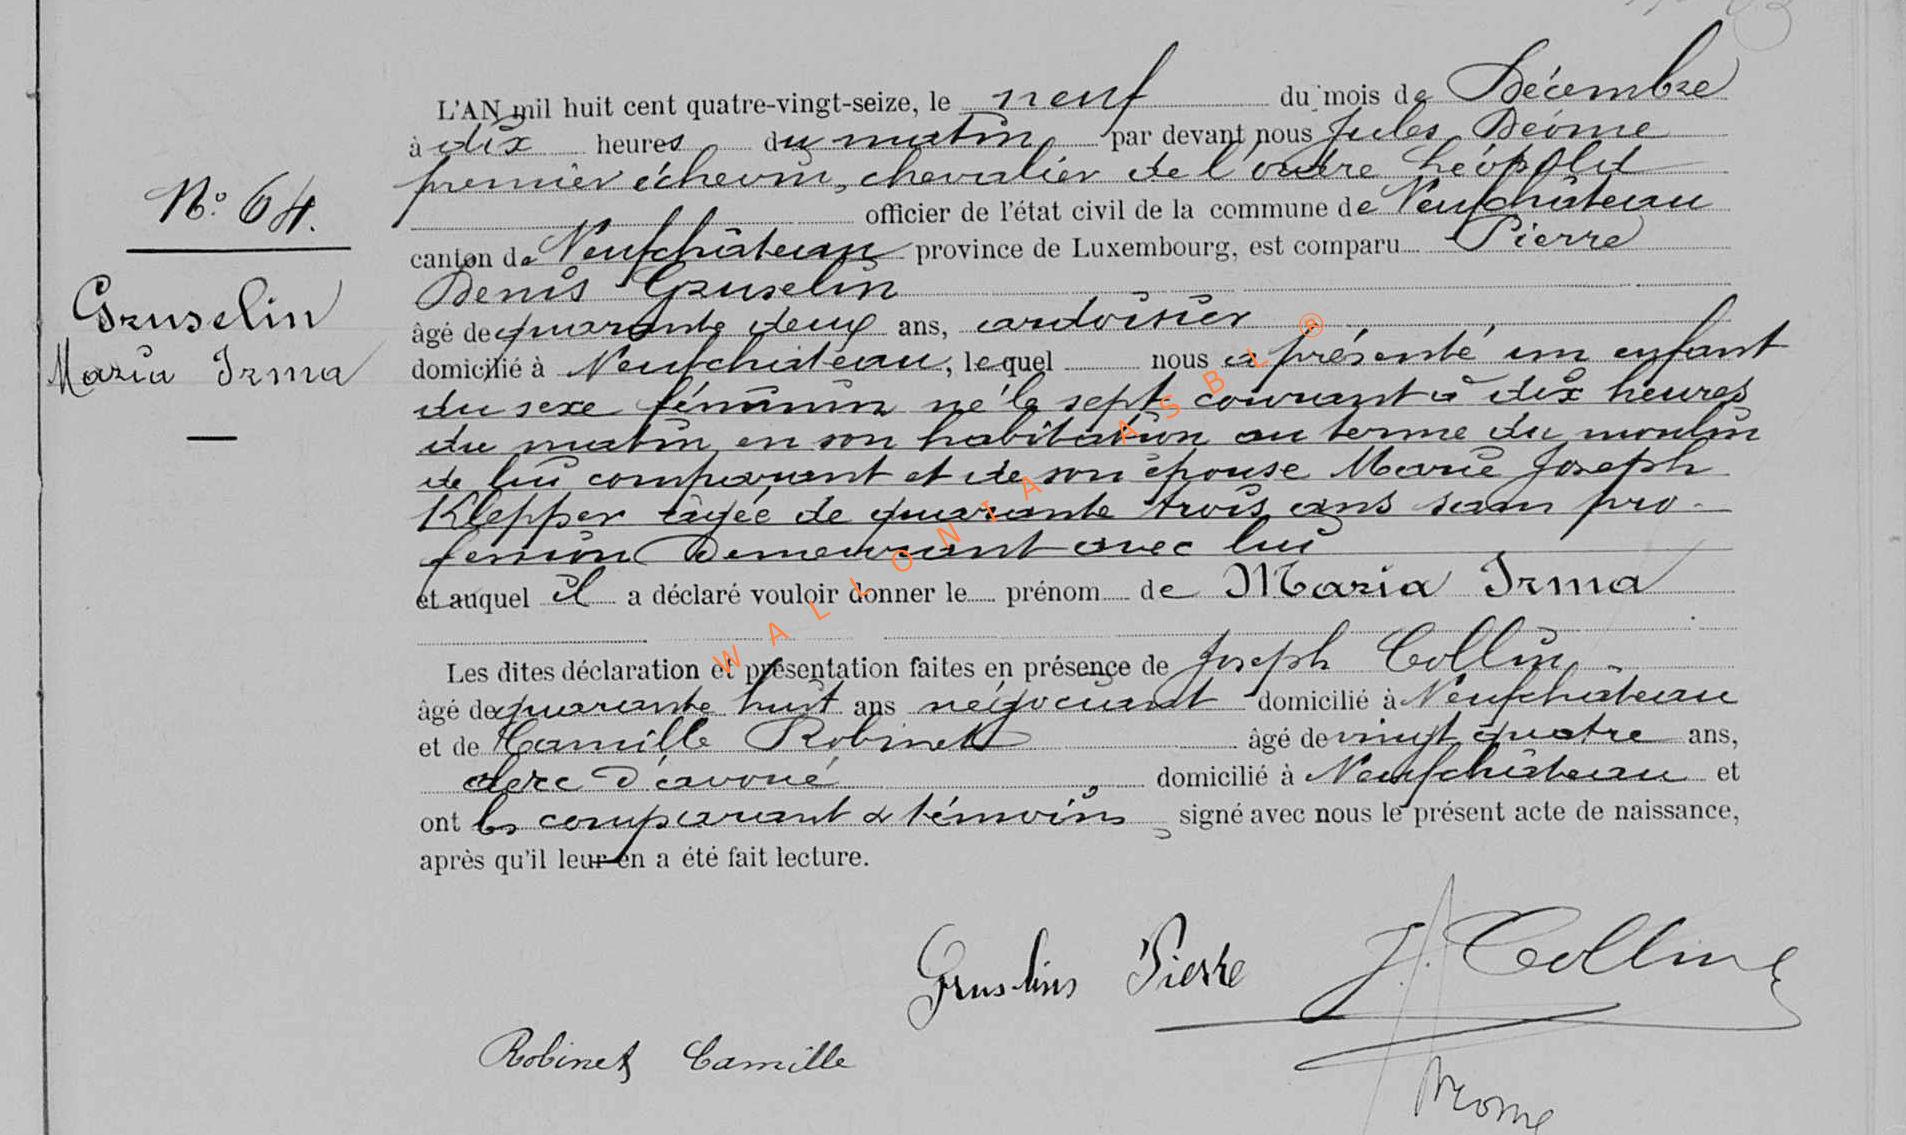 L'AN mil huit cent quatre-vingt-seize, le neuf du mois de Décembre
à dix heures du matin par devant nous Jules Déome
premier échevin, chevalier de l'ordre Léopold
officier de l'état civil de la commune de Neufchâteau
canton de Neufchâteau province de Luxembourg, est comparu Pierre
Denis Gruselin
âgé de quarante deux ans, ardoisier
domicilié à Neufchâteau, lequel nous a présenté un enfant
du sexe féminin né le sept courant à dix heures
du matin en son habitation au terme du moulin
de lui comparant et de son épouse Marie Joseph
Klepper âgée de quarante trois ans sans pro-
fession demeurant avec lui
et auquel il a déclaré vouloir donner le prénom de Maria Irma
Les dites déclaration et présentation faites en présence de Joseph Collin,
âgé de quarante huit ans négociant domicilié à Neufchâteau
et de Camille Robinet âgé de vingt quatre ans,
clerc d'avoué domicilié à Neufchâteau et
ont les comparant & témoins signé avec nous le présent acte de naissance,
après qu'il leur en a été fait lecture.
N.° 64.
Gruselin
Maria Irma
Gruslins Pierre
J. Collin
Robinet Camille
Déome
WALLONIA ASBL ®